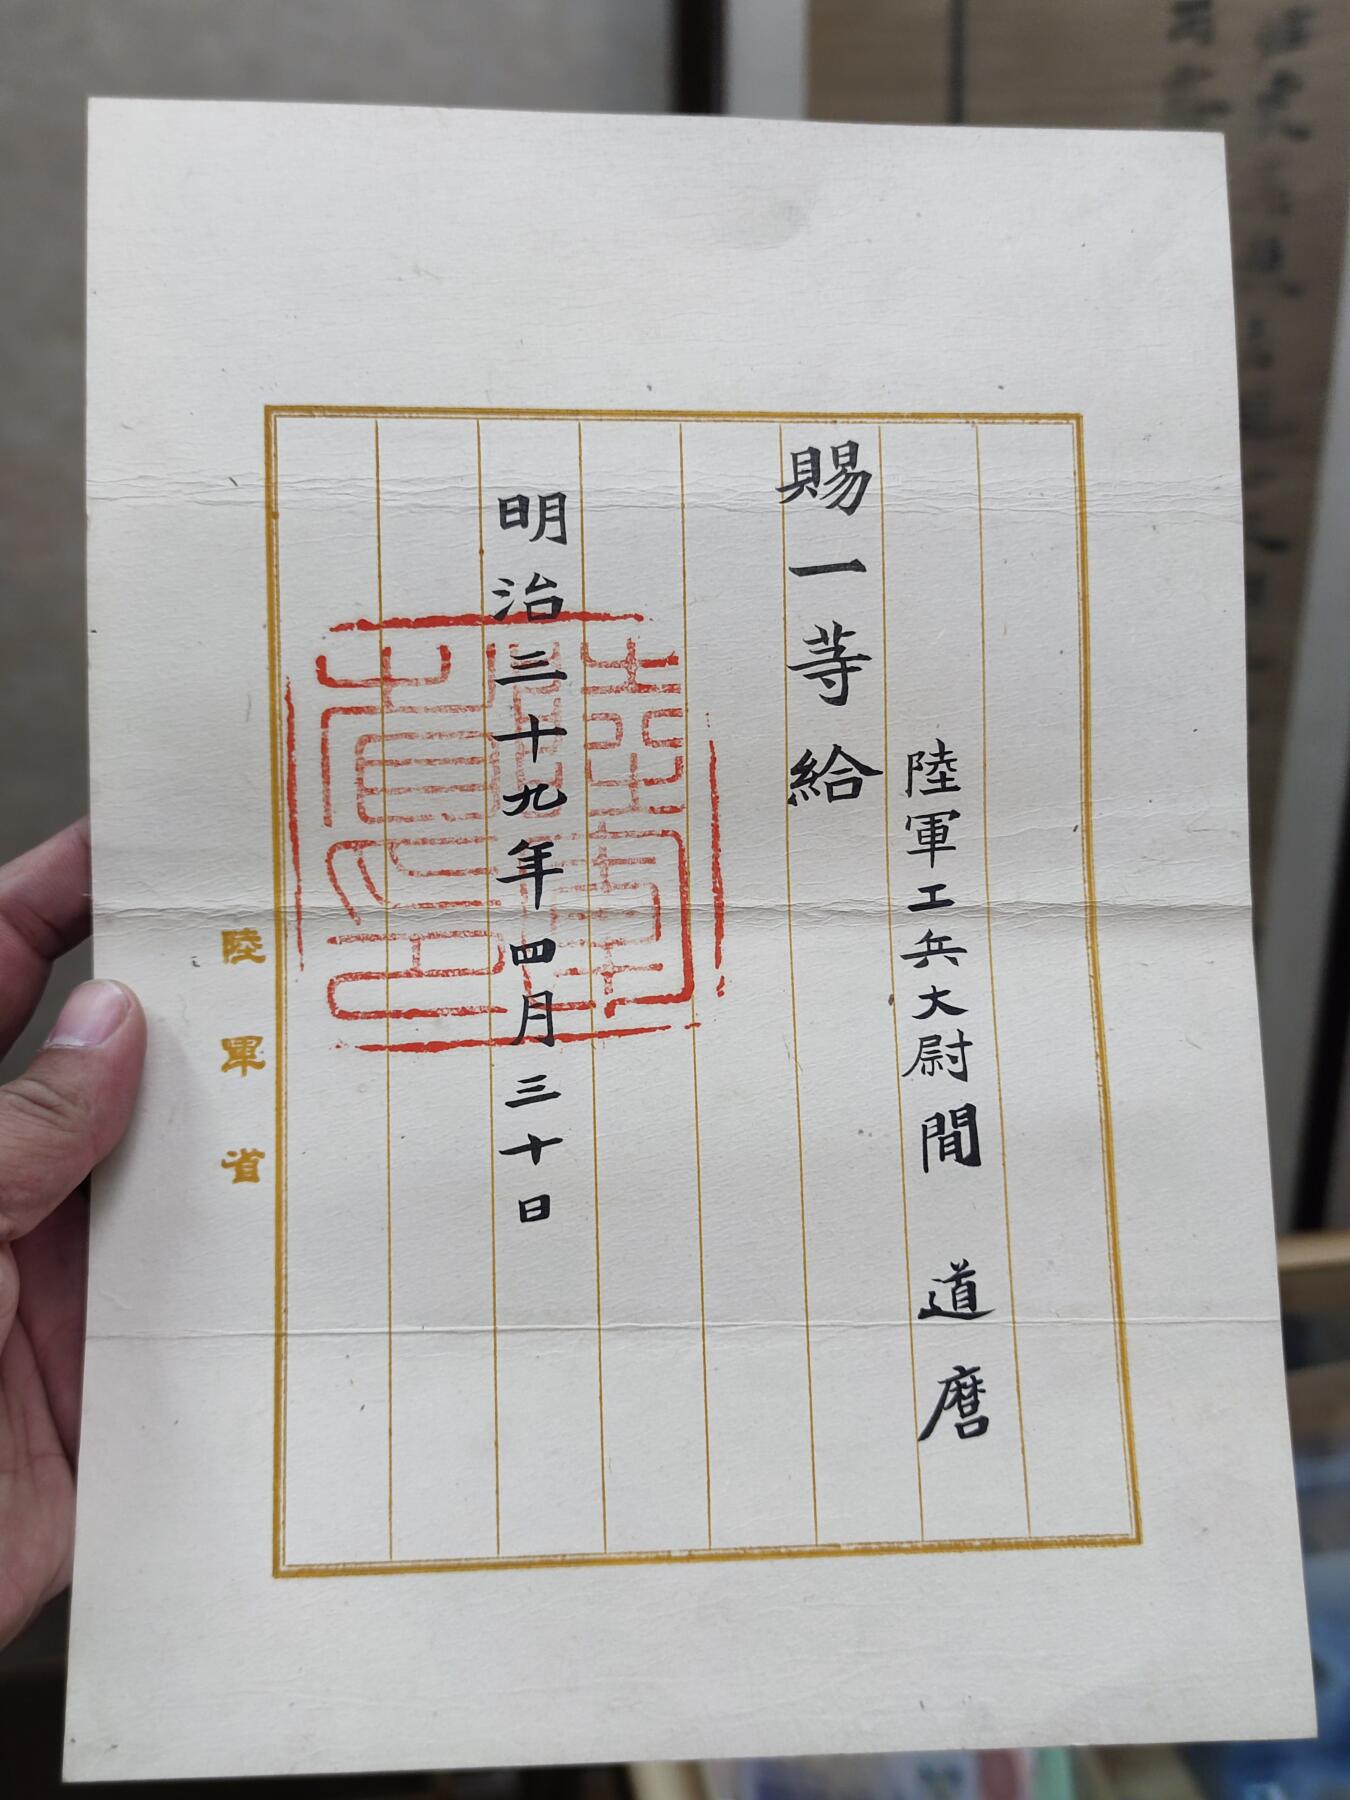 陸軍工兵大尉間 道麿
賜一等給
明治三十九年四月三十日
陸軍省